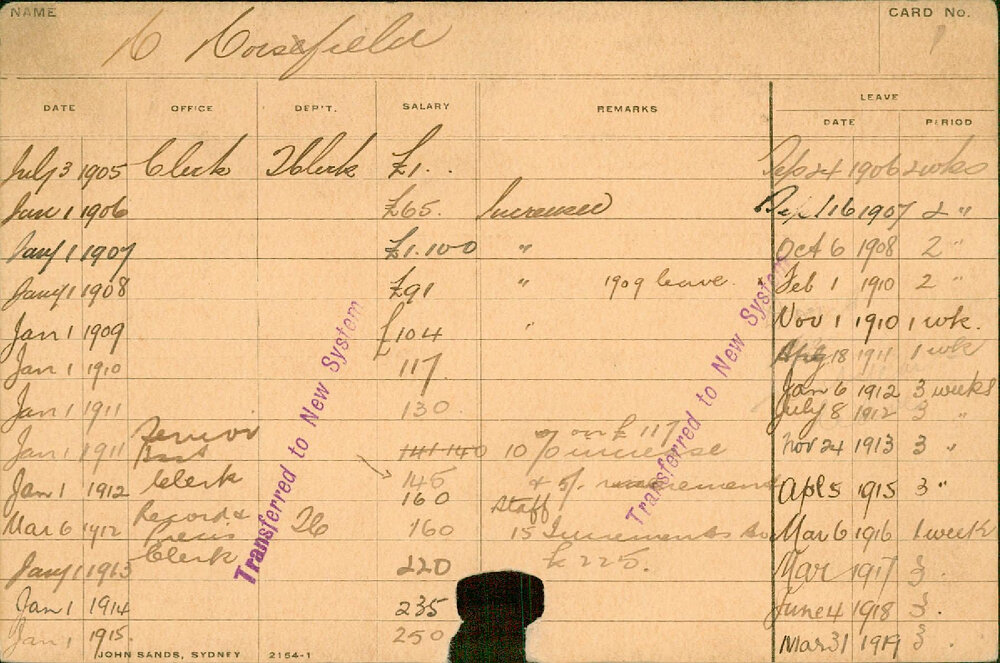 NAME
CARD No.
1
DATE OFFICE DEP'T. SALARY REMARKS LEAVE
DATE PERIOD
July 3 1905 Clerk £1.. Sep 24 1906 2 wks
Jan 1 1906 £65. Increased Sep 16 1907 2 "
Jany 1 1907 £1.10.0 " Oct 6 1908 2 "
Jany 1 1908 £91 " 1909 leave. Feb 1 1910 2 "
Jan 1 1909 £104 " Nov 1 1910 1 wk.
Jan 1 1910 117 18 1911 1 wk
Jan 6 1912 3 weeks
Jan 1 1911 130 July 8 1912 3 "
Jan 1 1911 Senior 140 10 % increase % on £117 Nov 24 1913 3 "
Jan 1 1912 Clerk 145 + 5/.
160 Staff Apl 5 1915 3 "
Mar 6 1912 Record & 160 15 Increments to Mar 6 1916 1 week
Precis
Clerk £225.
Jany 1 1913 220 Mar 1917 3.
Jan 1 1914 235 June 4 1918 3.
Jan 1 1915. 250 Mar 31 1919 3.
Transferred to New System
Transferred to New System
JOHN SANDS, SYDNEY 2154-1